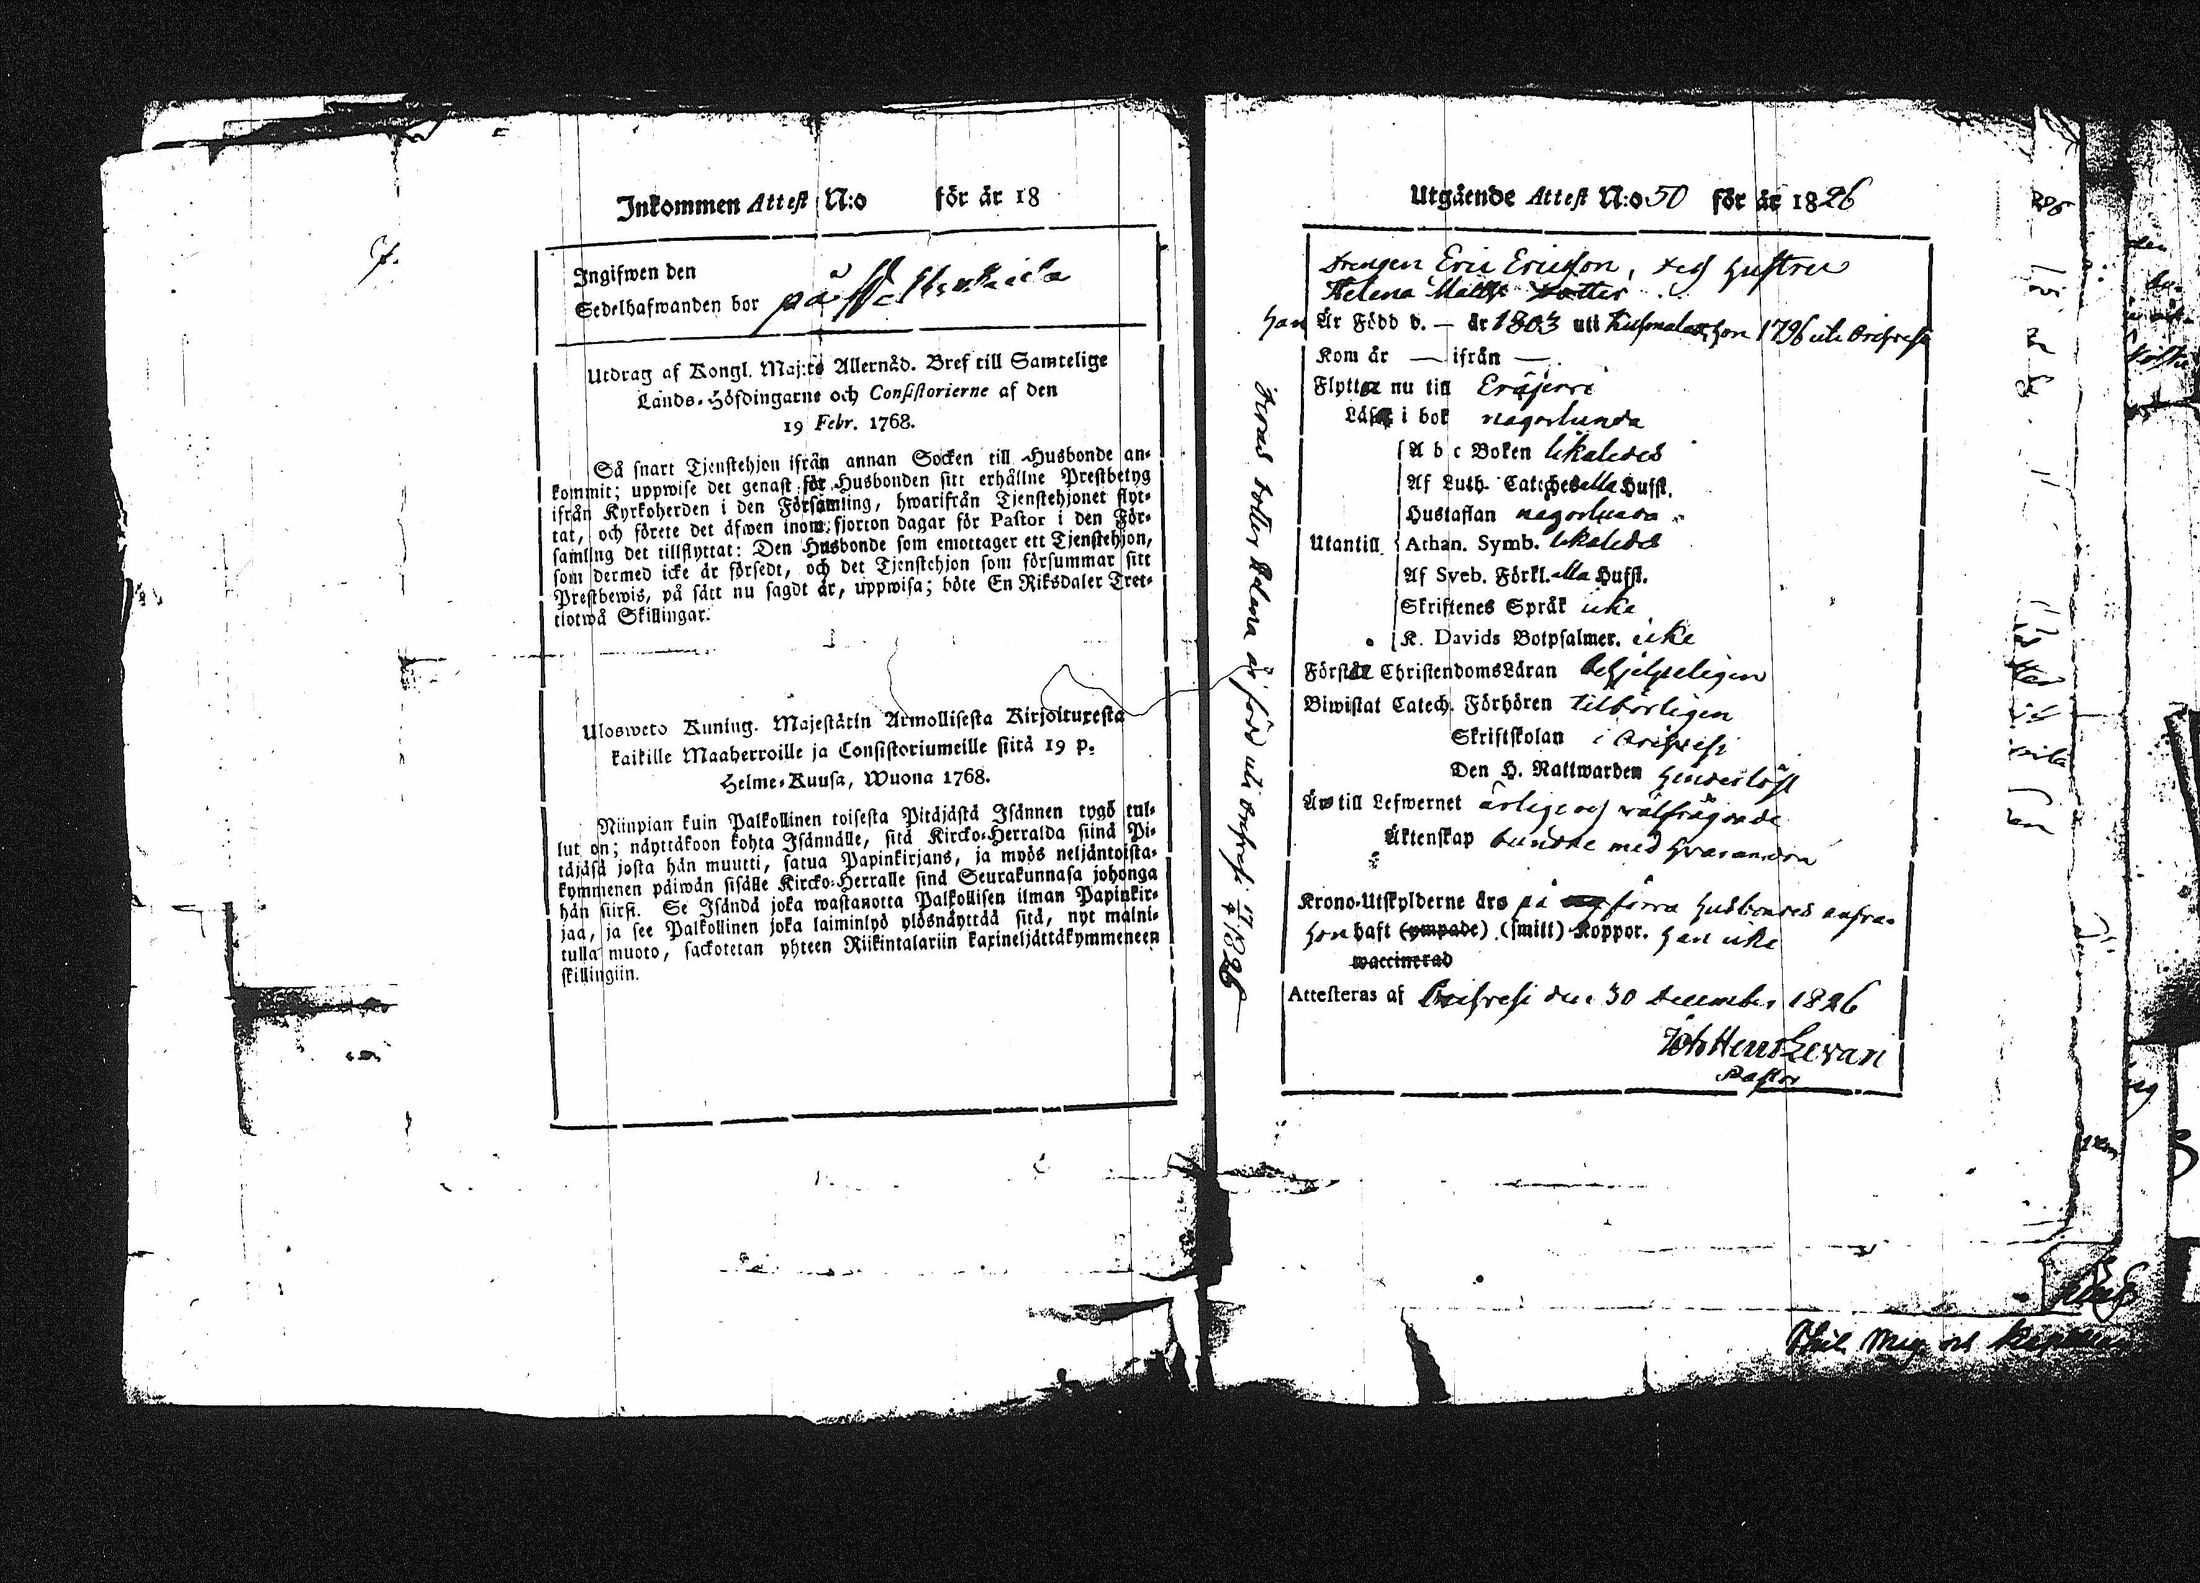 Inkommen Attest N:o för år 18
7.
Ingifwen den
Sedelhafwanden bor på
Utdrag af Kongl. Maj:ts Allernåd. Bref till Samtelige
Lands-Höfdingarne och Consistorierne af den
19 Febr. 1768.
Så snart Tjenstehjon ifrån annan Socken till Husbonde an-
kommit; uppwise det genast för Husbonden sitt erhållne Prestbetyg
ifrån Kyrkoherden i den Församling, hwarifrån Tjenstehjonet flyt-
tat, och förete det äfwen inom fjorton dagar för Pastor i den För-
samling det tillflyttat: Den Husbonde som emottager ett Tjenstehjon,
som dermed icke är försedt, och det Tjenstehjon som försummar sitt
Prestbewis, på sätt nu sagdt är, uppwisa; böte En Riksdaler Tret-
tiotwå Skillingar.
Ulosweto Kuning. Majestätin Armollisesta Kirjoituxesta
kaikille Maaherroille ja Consistoriumeille siitä 19 p.
Helme-Kuusa, Wuona 1768.
Niinpian kuin Palkollinen toisesta Pitäjästä Isännen tygö tul-
lut on; näyttäkoon kohta Isännälle, sitä Kircko-Herralda siinä Pi-
täjäsä josta hän muutti, satua Papinkirjans, ja myös neljäntoista-
kymmenen päiwän sisälle Kircko-Herralle sinä Seurakunnasa johonga
hän siirsi. Se Isändä joka wastanotta Palkollisen ilman Papinkir-
jaa, ja see Palkollinen joka laiminlyö ylösnäyttää sitä, nyt maini-
tulla muoto, sackotetan yhteen Riikintalariin kaxineljättäkymmeneen
skillingiin.
Utgående Attest N:o 50 för år 1826
Drengen Eric Ericsson, och Hustru
Helena Matts dotter
Han Är Född d. — år 1803 uti Kuhmalax, hon 1796 uti Orihvesi
Kom år — ifrån —
Flyttar nu till Eräjervi
Läser i bok någorlunda
A b c Boken likaledes
Af Luth. Cateches alla Hufst.
Hustaflan någorlunda
Utantill Athan. Symb. likaledes
Af Sveb. Förkl. alla Hufst.
Skriftenes Språk icke
K. Davids Botpsalmer. icke
Förstår ChristendomsLäran behjelpeligen
Biwistat Catech. Förhören tilbörligen
Skriftskolan i Orihvesi
Den H. Nattwarden hinderlöst
Är till Lefwernet ärlige och välfrägdade
Äktenskap bundne med hvarandra
Krono-Utskylderne äro på förra husbondes ansva-
Hon haft (ympade) (smitt) Koppor. Han icke
waccinerad
Attesteras af Orihvesi den 30 December 1826
Joh Henr Levan
Pastor
deras dotter Helena är född uti Orihvesi 1826